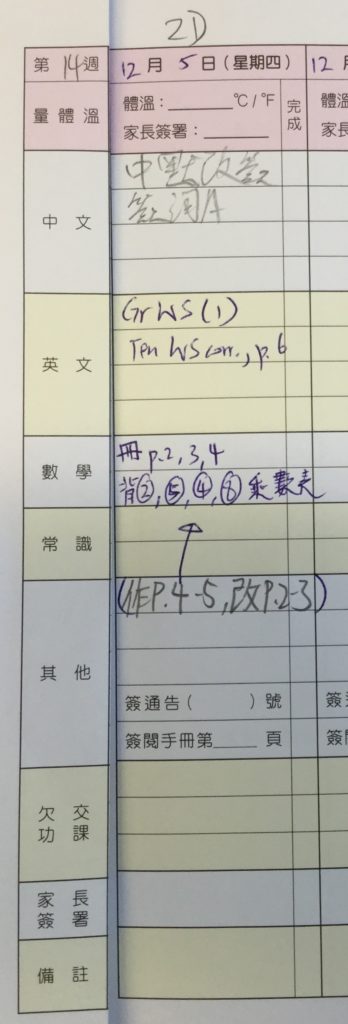 2D
第14週 12月5日(星期四) 12月
量體溫 體溫:______℃/℉ 完成 體溫
家長簽署:______ 家長
中文 中默改簽
簽詞A
英文 Gr WS (1)
Ten WS corr., p.6
數學 冊 p.2, 3, 4
背②,⑤,④,⑧ 乘數表
常識
其他 (作P.4-5,改P.2-3)
簽通告( )號 簽
簽閱手冊第____頁 簽
欠交功課
家長簽署
備註